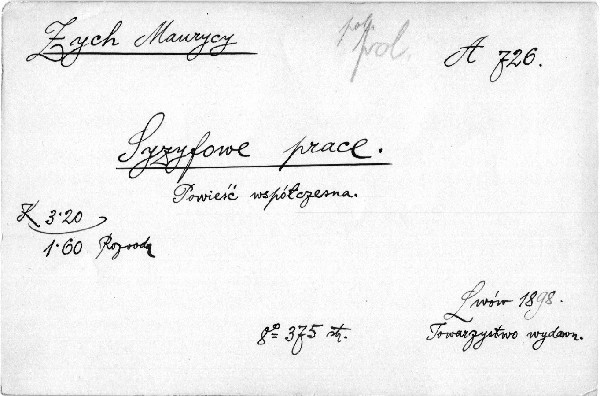 Zych Maurycy
pol.
A 726.
Syzyfowe prace.
Powieść współczesna.
K 3·20
1·60
Lwów 1898.
8° 375 str.
Towarzystwo wydawn.